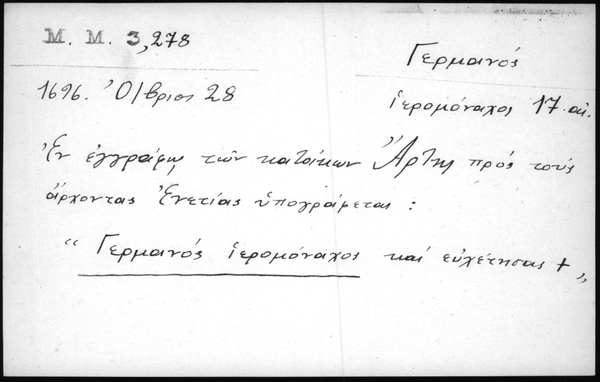 Μ. Μ. 3,278
Γερμανός
1696. Ὀ/βριος 28
ἱερομόναχος 17 αἰ.
Ἐν ἐγγράφῳ τῶν κατοίκων Ἄρτης πρός τούς
ἄρχοντας Ἐνετίας ὑπογράφεται :
“ Γερμανός ἱερομόναχος καί εὐχέτησας + „